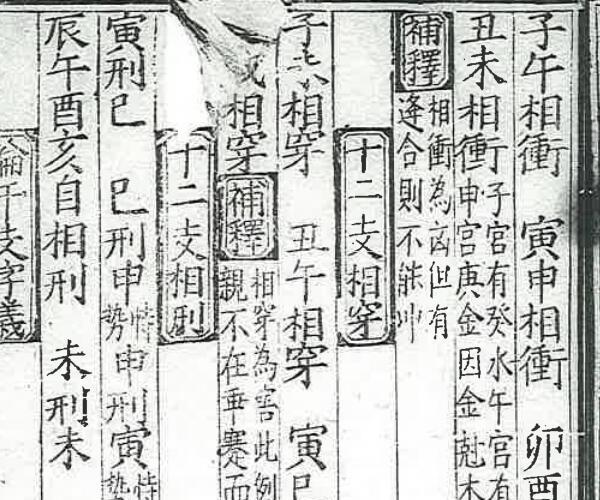 子午相衝　寅申相衝　卯酉
丑未相衝
子宮有癸水午宮有
申宮庚金因金尅木
補釋
相衝為凶但有
逄合則不能冲
十二支相穿
子未相穿　丑午相穿　寅巳
相穿
補釋
相穿為害此例
親不在而
十二支相刑
寅刑巳　巳刑申恃勢申刑寅恃勢
辰午酉亥自相刑　未刑未
論干支字義